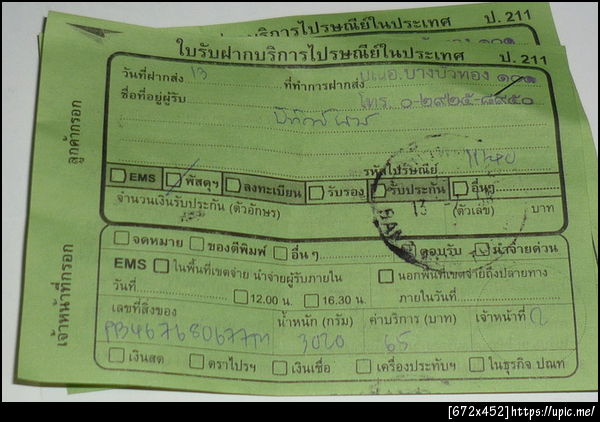 บริการไปรษณีย์ในประเทศ ป. 211
ใบรับฝากบริการไปรษณีย์ในประเทศ ป. 211
วันที่ฝากส่ง 13 ที่ทำการฝากส่ง ปณอ.บางบัวทอง ๑๐๑
ชื่อที่อยู่ผู้รับ โทร. ๐-๒๙๒๕-๘๙๕๐
ลูกค้ากรอก
รหัสไปรษณีย์
EMS พัสดุฯ ลงทะเบียน รับรอง รับประกัน อื่นๆ
จำนวนเงินรับประกัน (ตัวอักษร) 13 (ตัวเลข) บาท
BAN
เจ้าหน้าที่กรอก
จดหมาย ของตีพิมพ์ อื่น ๆ ตอบรับ นำจ่ายด่วน
EMS ในพื้นที่เขตจ่าย นำจ่ายผู้รับภายใน นอกพื้นที่เขตจ่ายถึงปลายทาง
วันที่ 12.00 น. 16.30 น. ภายในวันที่
เลขที่สิ่งของ น้ำหนัก (กรัม) ค่าบริการ (บาท) เจ้าหน้าที่
3020 65
เงินสด ตราไปรฯ เงินเชื่อ เครื่องประทับฯ ในธุรกิจ ปณท
[672x452]https://upic.me/